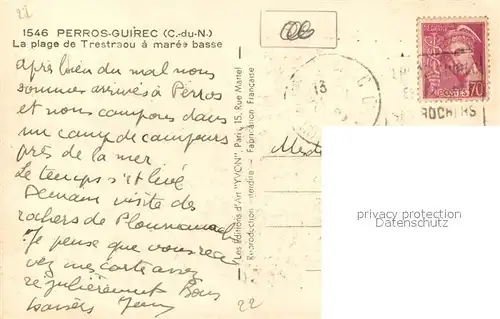 22
1546 PERROS-GUÍREC (C.-du-N.)
La plage de Trestraou à marée basse
après bien du mal nous
sommes arrivés à Perros
et nous campons dans
un camp de campeurs
près de la mer.
Le temps s'est levé
Demain visite des
rochers de Ploumanach
Je pense que vous rece
vez mes cartes assez
régulièrement Bons
baisers
22
Les Éditions d'Art "YVON", Paris, 15, Rue Martel
Reproduction interdite - Fabrication Française
13
POSTES 70
ROCHERS
privacy protection
watermark